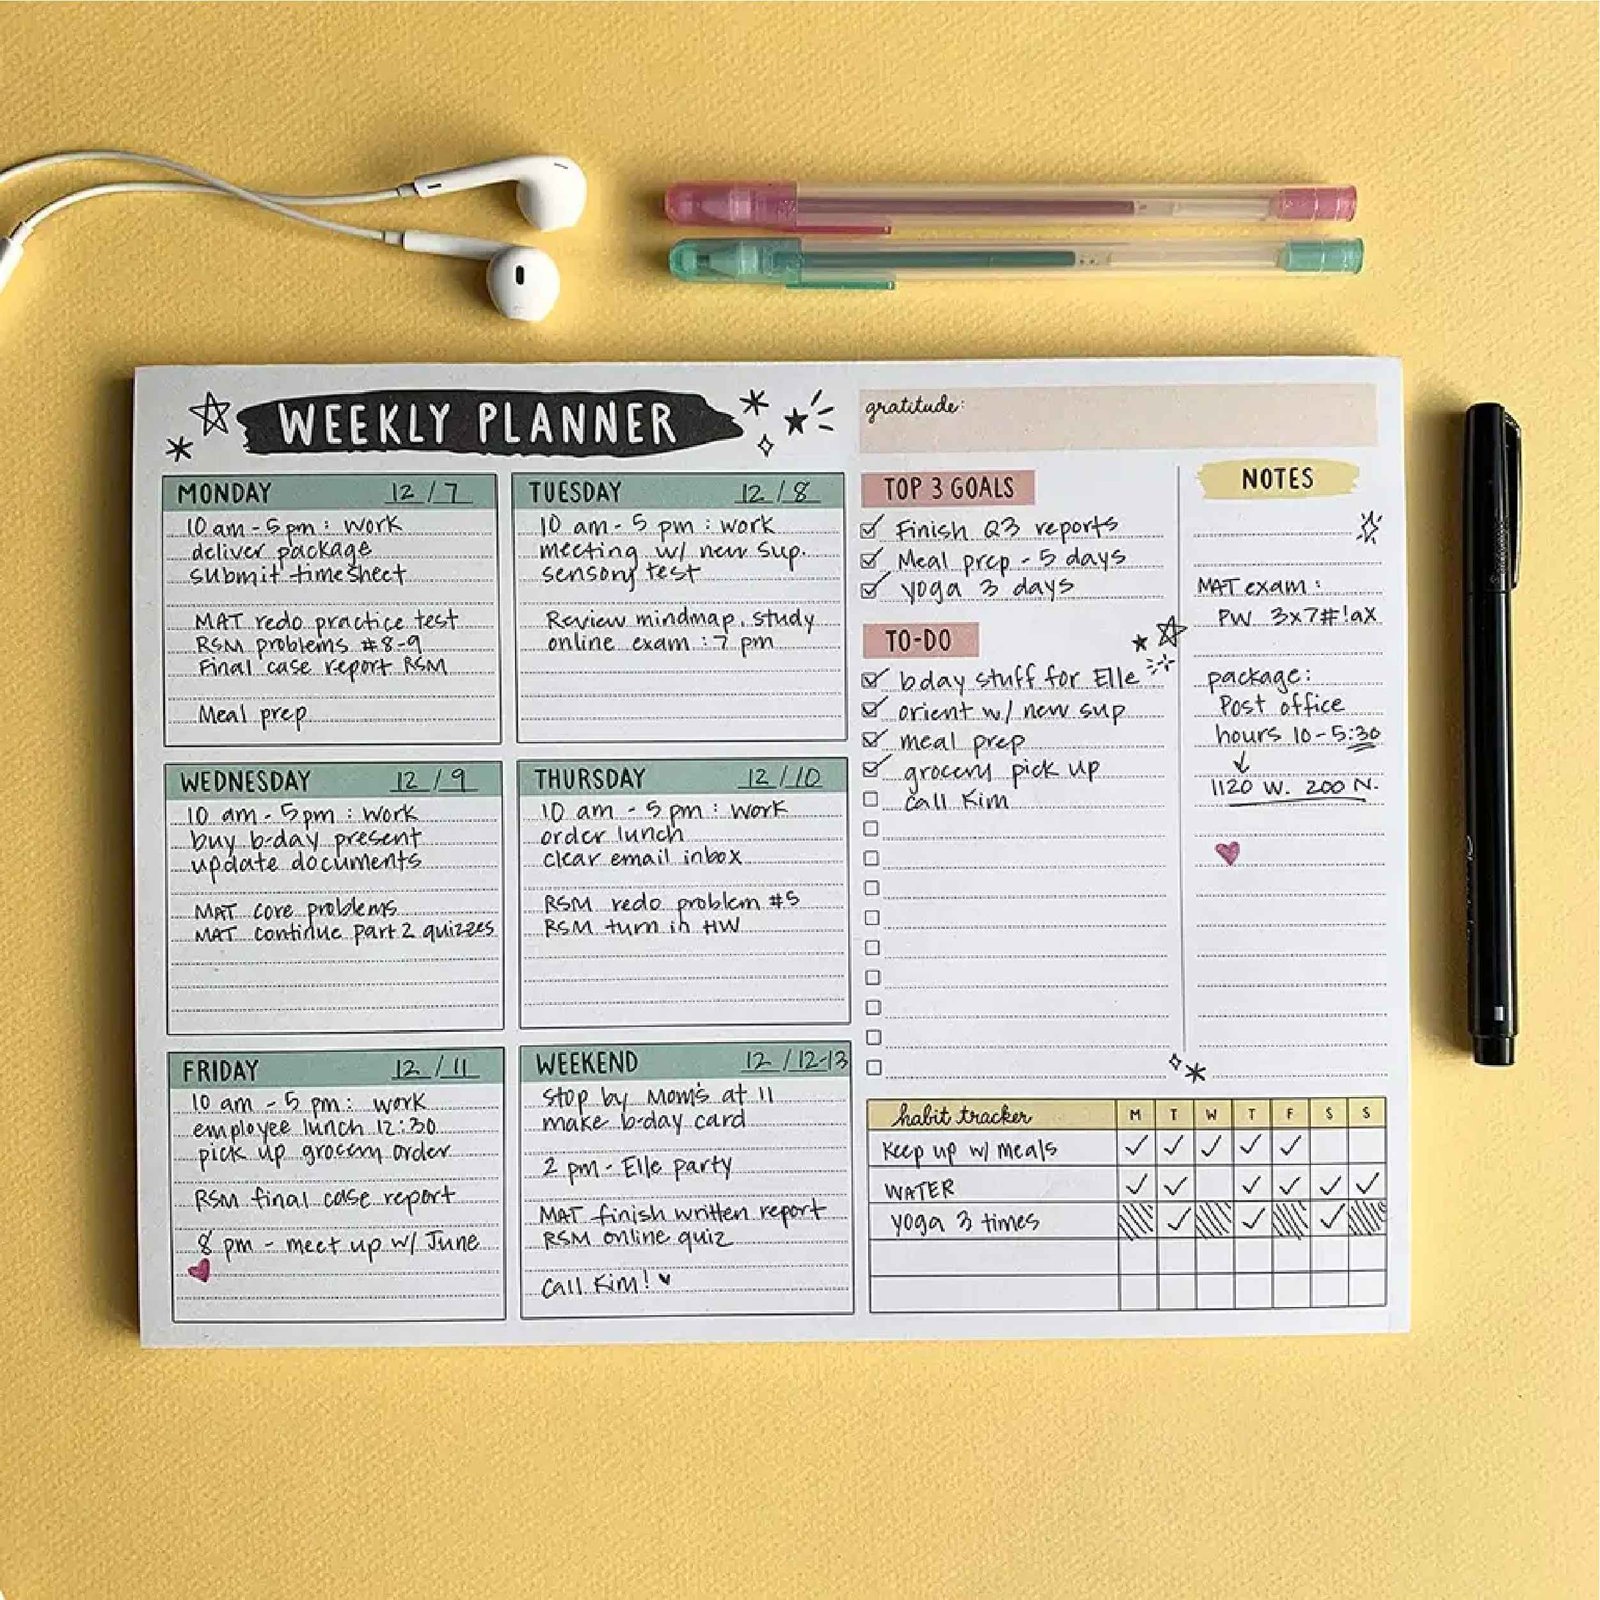 WEEKLY PLANNER
MONDAY 12/7
10 am - 5 pm : work
deliver package
submit timesheet
MAT redo practice test
RSM problems #8-9
Final case report RSM
Meal prep
TUESDAY 12/8
10 am - 5 pm : work
meeting w/ new sup.
sensory test
Review mindmap, study
online exam : 7 pm
WEDNESDAY 12/9
10 am - 5pm : work
buy b-day present
update documents
MAT core problems
MAT continue part 2 quizzes
THURSDAY 12/10
10 am - 5 pm : work
order lunch
clear email inbox
RSM redo problem #5
RSM turn in HW
FRIDAY 12/11
10 am - 5 pm : work
employee lunch 12:30
pick up grocery order
RSM final case report
8 pm - meet up w/ June
WEEKEND 12/12-13
Stop by Mom's at 11
make b-day card
2 pm - Elle party
MAT finish written report
RSM online quiz
Call Kim!
gratitude:
TOP 3 GOALS
Finish Q3 reports
Meal prep - 5 days
yoga 3 days
TO-DO
bday stuff for Elle
orient w/ new sup
meal prep
grocery pick up
call Kim
NOTES
MAT exam :
PW 3x7#!ax
package:
Post office
hours 10-5:30
1120 W. 200 N.
habit tracker M T W T F S S
Keep up w/ meals
WATER
yoga 3 times